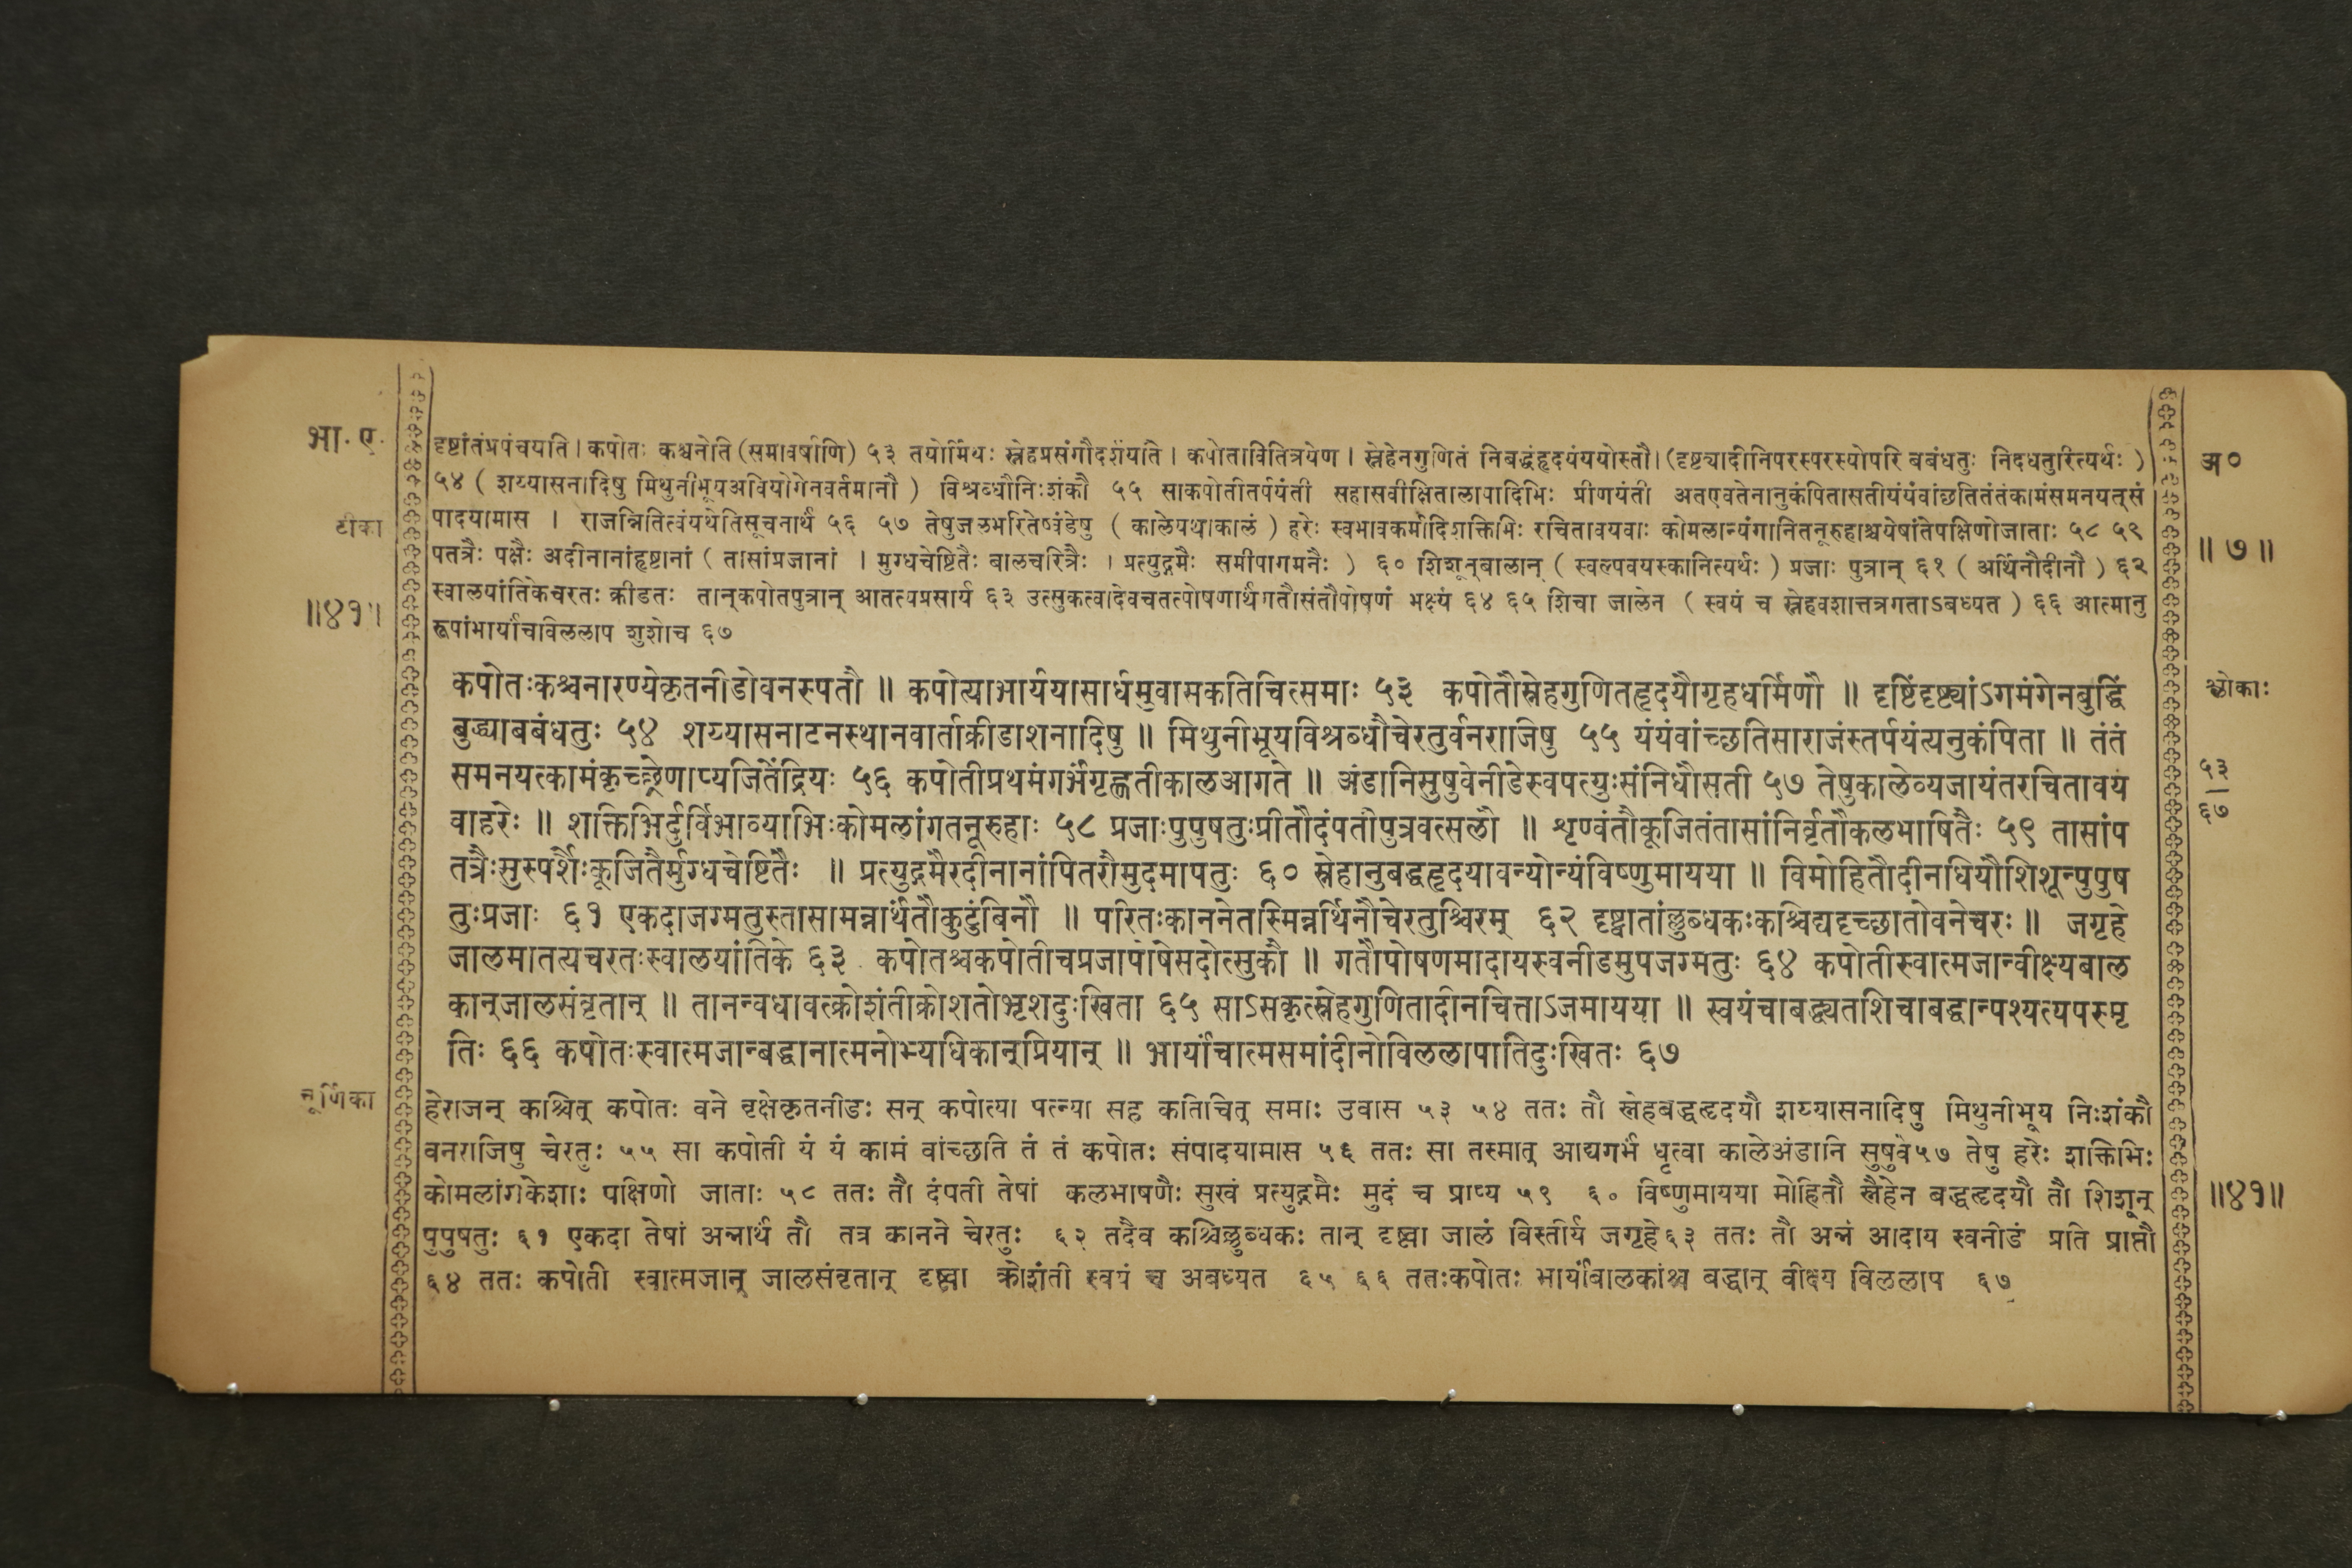 भा. ए.
दृष्टांतंप्रपंचयति। कपोतः कश्चनेति (समावर्षाणि) ५३ तयोर्मिथः स्नेहप्रसंगौदर्शयति। कपोताविति‌त्रयेण। स्नेहेनगुणितं निबद्धंहृदयंययोस्तौ। (दृष्ट्यादीनिपरस्परस्योपरि बबंधतुः निदधतुरित्यर्थः)
५४ ( शय्यासनादिषु मिथुनीभूयअवियोगेनवर्तमानौ ) विश्रब्धौनिःशंकौ ५५ साकपोतीतर्पयंती सहासवीक्षितालापादिभिः प्रीणयंती अतएवतेनानुकंपितासतीयंयंवांछतितंतंकामंसमनयत्सं
पादयामास । राजन्नितित्वंयथेतिसूचनार्थं ५६ ५७ तेषुजलभरितेष्वंडेषु ( कालेयथाकालं ) हरेः स्वभावकर्मादिशक्तिभिः रचितावयवाः कोमलान्यंगानितनूरुहाश्चयेषांतेपक्षिणोजाताः ५८ ५९
पतत्रैः पक्षैः अदीनानांहृष्टानां ( तासांप्रजानां । मुग्धचेष्टितैः बालचरित्रैः । प्रत्युद्गमैः समीपागमनैः ) ६० शिशून्बालान् ( स्वल्पवयस्कानित्यर्थः ) प्रजाः पुत्रान् ६१ ( अर्थिनौदीनौ ) ६२
स्वालयांतिकेचरतः क्रीडतः तान्कपोतपुत्रान् आतत्यप्रसार्य ६३ उत्सुकत्वादेवचतत्पोषणार्थंगतौसंतौपोषणं भक्ष्यं ६४ ६५ शिचा जालेन ( स्वयं च स्नेहवशात्तत्रगताऽबध्यत ) ६६ आत्मानु
रूपांभार्यांचविललाप शुशोच ६७
टीका
॥४१॥
अ०
॥ ७ ॥
कपोतःकश्चनारण्येकृतनीडोवनस्पतौ ॥ कपोत्याभार्ययासार्धमुवासकतिचित्समाः ५३ कपोतौस्नेहगुणितहृदयौगृहधर्मिणौ ॥ दृष्टिंदृष्ट्यांऽगमंगेनबुद्धिं
बुद्ध्याबबंधतुः ५४ शय्यासनाटनस्थानवार्ताक्रीडाशनादिषु ॥ मिथुनीभूयविश्रब्धौचेरतुर्वनराजिषु ५५ यंयंवांच्छतिसाराजंस्तर्पयंत्यनुकंपिता ॥ तंतं
समनयत्कामंकृच्छ्रेणाप्यजितेंद्रियः ५६ कपोतीप्रथमंगर्भंगृह्णतीकालआगते ॥ अंडानिसुषुवेनीडेस्वपत्युःसंनिधौसती ५७ तेषुकालेव्यजायंतरचितावय
वाहरेः ॥ शक्तिभिर्दुर्विभाव्याभिःकोमलांगतनूरुहाः ५८ प्रजाःपुपुषतुःप्रीतौदंपतीपुत्रवत्सलौ ॥ शृण्वंतौकूजितंतासांनिर्वृतौकलभाषितैः ५९ तासांप
तत्रैःसुस्पर्शैःकूजितैर्मुग्धचेष्टितैः ॥ प्रत्युद्गमैरदीनानांपितरौमुदमापतुः ६० स्नेहानुबद्धहृदयावन्योन्यंविष्णुमायया ॥ विमोहितौदीनधियौशिशून्पुपुष
तुःप्रजाः ६१ एकदाजग्मतुस्तासामन्नार्थंतौकुटुंबिनौ ॥ परितःकाननेतस्मिन्नर्थिनौचेरतुश्चिरम् ६२ दृष्ट्वातांल्लुब्धकःकश्चिद्यदृच्छातोवनेचरः ॥ जगृहे
जालमातत्यचरतःस्वालयांतिके ६३ कपोतश्चकपोतीचप्रजापोषेसदोत्सुकौ ॥ गतौपोषणमादायस्वनीडमुपजग्मतुः ६४ कपोतीस्वात्मजान्वीक्ष्यबाल
कान्जालसंवृतान् ॥ तानन्वधावत्क्रोशंतीक्रोशतोभृशदुःखिता ६५ साऽसकृत्स्नेहगुणितादीनचित्ताऽजमायया ॥ स्वयंचाबद्ध्यतशिचाबद्धान्पश्यत्यपस्मृ
तिः ६६ कपोतःस्वात्मजान्बद्धानात्मनोभ्यधिकान्प्रियान् ॥ भार्यांचात्मसमांदीनोविललापातिदुःखितः ६७
श्लोकाः
५३
६७
चूर्णिका
हेराजन् कश्चित् कपोतः वने वृक्षेकृतनीडः सन् कपोत्या पत्न्या सह कतिचित् समाः उवास ५३ ५४ ततः तौ स्नेहबद्धहृदयौ शय्यासनादिषु मिथुनीभूय निःशंकौ
वनराजिषु चेरतुः ५५ सा कपोती यं यं कामं वांच्छति तं तं कपोतः संपादयामास ५६ ततः सा तस्मात् आद्यगर्भं धृत्वा कालेअंडानि सुषुवे५७ तेषु हरेः शक्तिभिः
कोमलांगकेशाः पक्षिणो जाताः ५८ ततः तौ दंपती तेषां कलभाषणैः सुखं प्रत्युद्गमैः मुदं च प्राप्य ५९ ६० विष्णुमायया मोहितौ स्नैहेन बद्धहृदयौ तौ शिशून्
पुपुषतुः ६१ एकदा तेषां अन्नार्थं तौ तत्र कानने चेरतुः ६२ तदैव कश्चिल्लुब्धकः तान् दृष्ट्वा जालं विस्तीर्य जगृहे६३ ततः तौ अन्नं आदाय स्वनीडं प्रति प्राप्तौ
६४ ततः कपोती स्वात्मजान् जालसंवृतान् दृष्ट्वा क्रोशंती स्वयं च अबध्यत ६५ ६६ ततःकपोतः भार्यांबालकांश्च बद्धान् वीक्ष्य विललाप ६७
॥४१॥